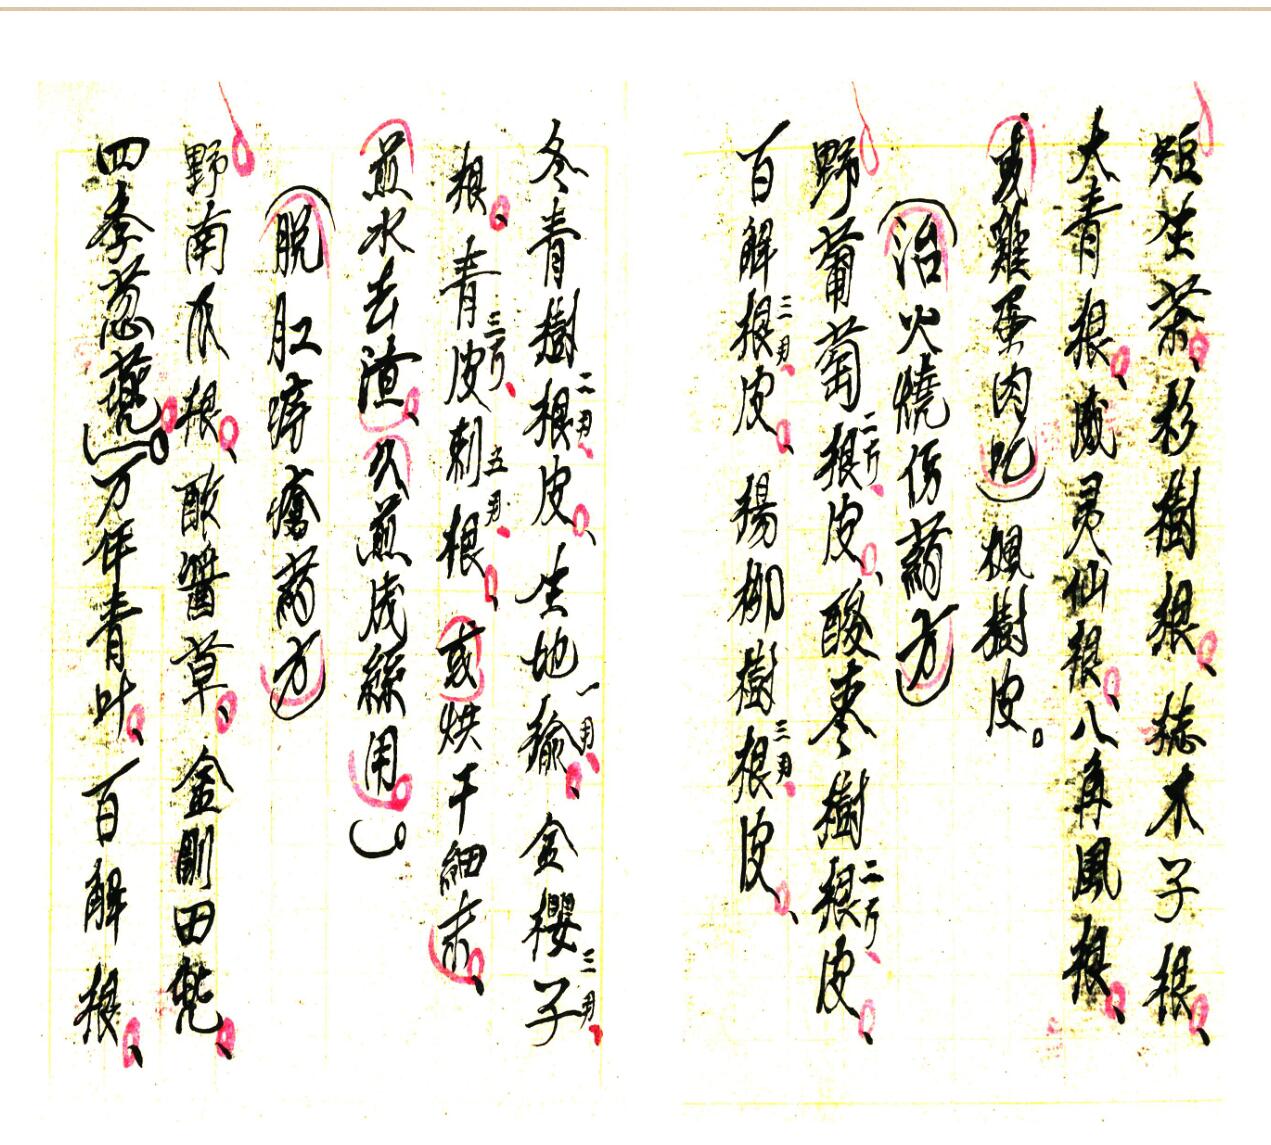 短茎茶、杉樹根、梽木子根、
大青根、威灵仙根、八角風根、
或雞蛋肉吃 楓樹皮。
治火燒傷葯方
野葡萄根皮二斤、酸棗樹根皮二斤、
百解根皮三两、楊柳樹根皮三两、
冬青樹根皮二两、生地榆一两、金櫻子
根三两、青皮刺根三斤五两、或烘干細末、
煎水去渣、久煎成絲用
脱肛痔瘡葯方
野南瓜根、酸醬草、金剛田兜、
四季葱蔸 万年青叶、百解根、